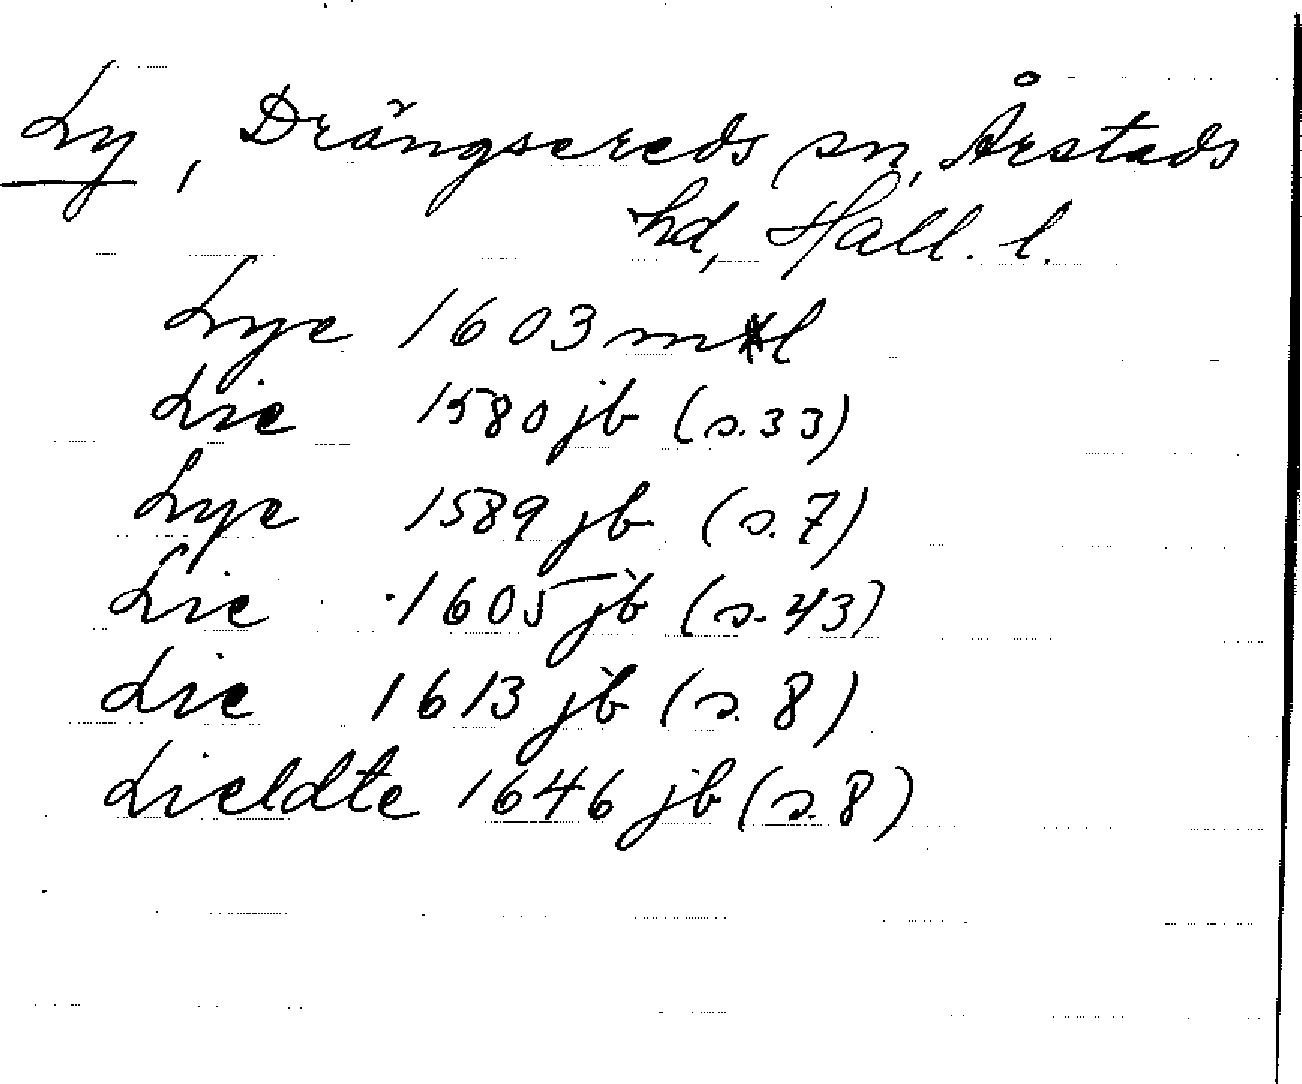 Ly, Drängsereds sn, Årstads
hd, Hall. l.
Lye 1603 mtl
Lie 1580 jb (s. 33)
Lye 1589 jb (s. 7)
Lie 1605 jb (s. 43)
Lie 1613 jb (s. 8)
Lieldte 1646 jb (s. 8)